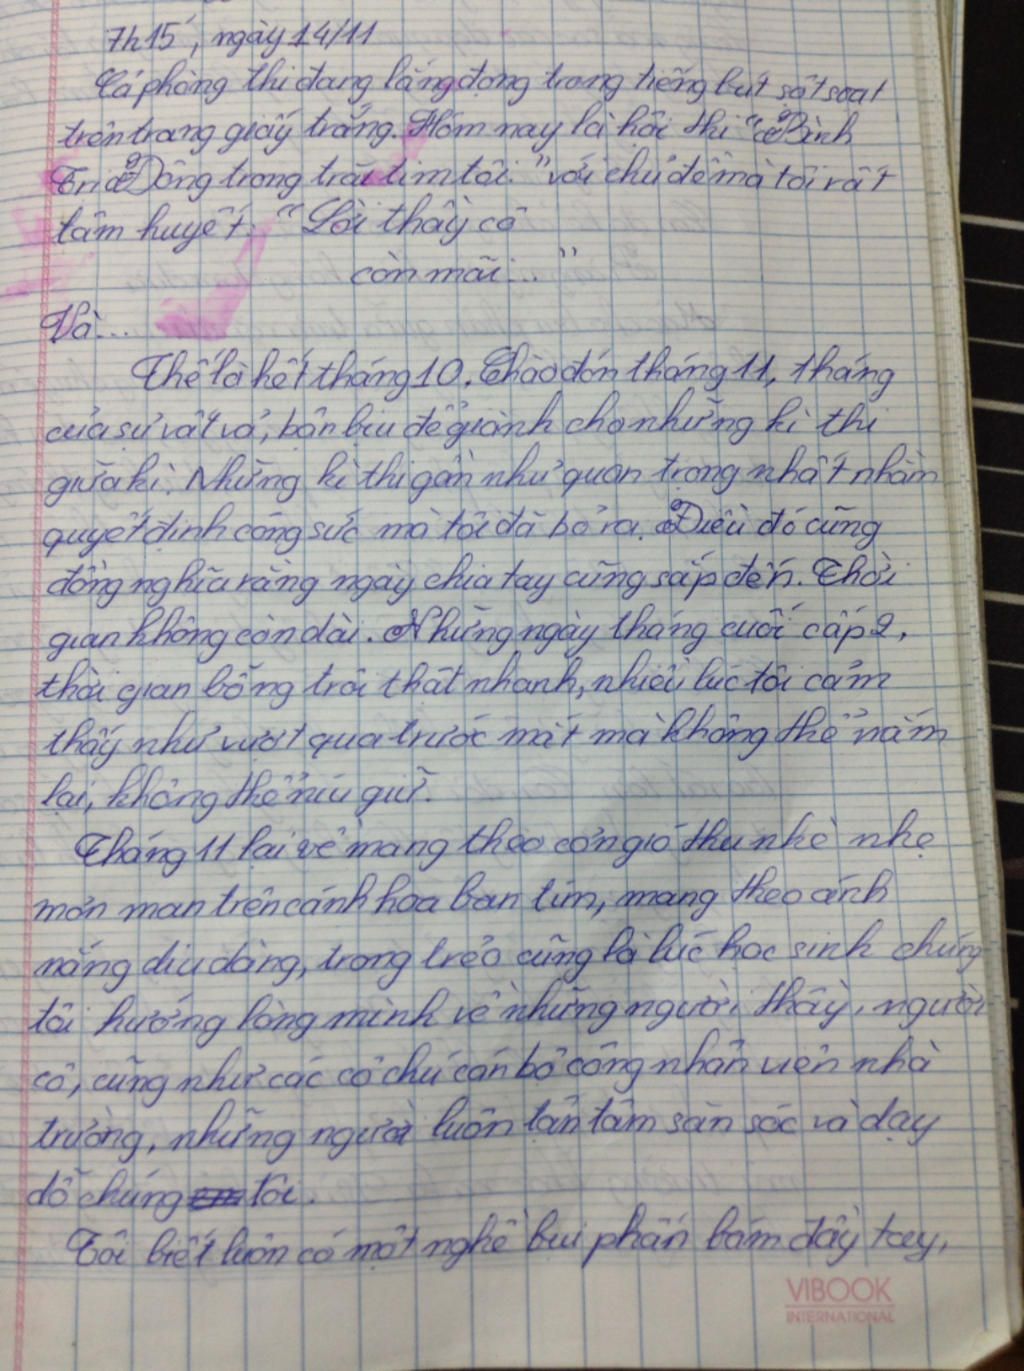 7h15', ngày 14/11
Cả phòng thi đang lắng đọng trong tiếng bút sột soạt
trên trang giấy trắng. Hôm nay là hội thi "Bình
En Đông trong trái tim tôi." với chủ đề mà tôi rất
tâm huyết: "Lời thầy cô
còn mãi..."
Và...
Thế là hết tháng 10. Chào đón tháng 11, tháng
của sự vất vả, bận bịu để giành cho những kì thi
giữa kì. Những kì thi gần như quan trọng nhất nhằm
quyết định công sức mà tôi đã bỏ ra. Điều đó cũng
đồng nghĩa rằng ngày chia tay cũng sắp đến. Thời
gian không còn dài. Những ngày tháng cuối cấp 2,
thời gian bỗng trôi thật nhanh, nhiều lúc tôi cảm
thấy như vượt qua trước mắt mà không thể nắm
lại, không thể níu giữ.
Tháng 11 lại về mang theo cơn gió thu nhè nhẹ
mơn man trên cánh hoa ban tím, mang theo ánh
nắng dịu dàng, trong trẻo cũng là lúc học sinh chúng
tôi hướng lòng mình về những người thầy, người
cô, cũng như các cô chú cán bộ công nhân viên nhà
trường, những người luôn tận tâm săn sóc và dạy
dỗ chúng tôi.
Tôi biết luôn có một nghề bụi phấn bám đầy tay,
VIBOOK
INTERNATIONAL